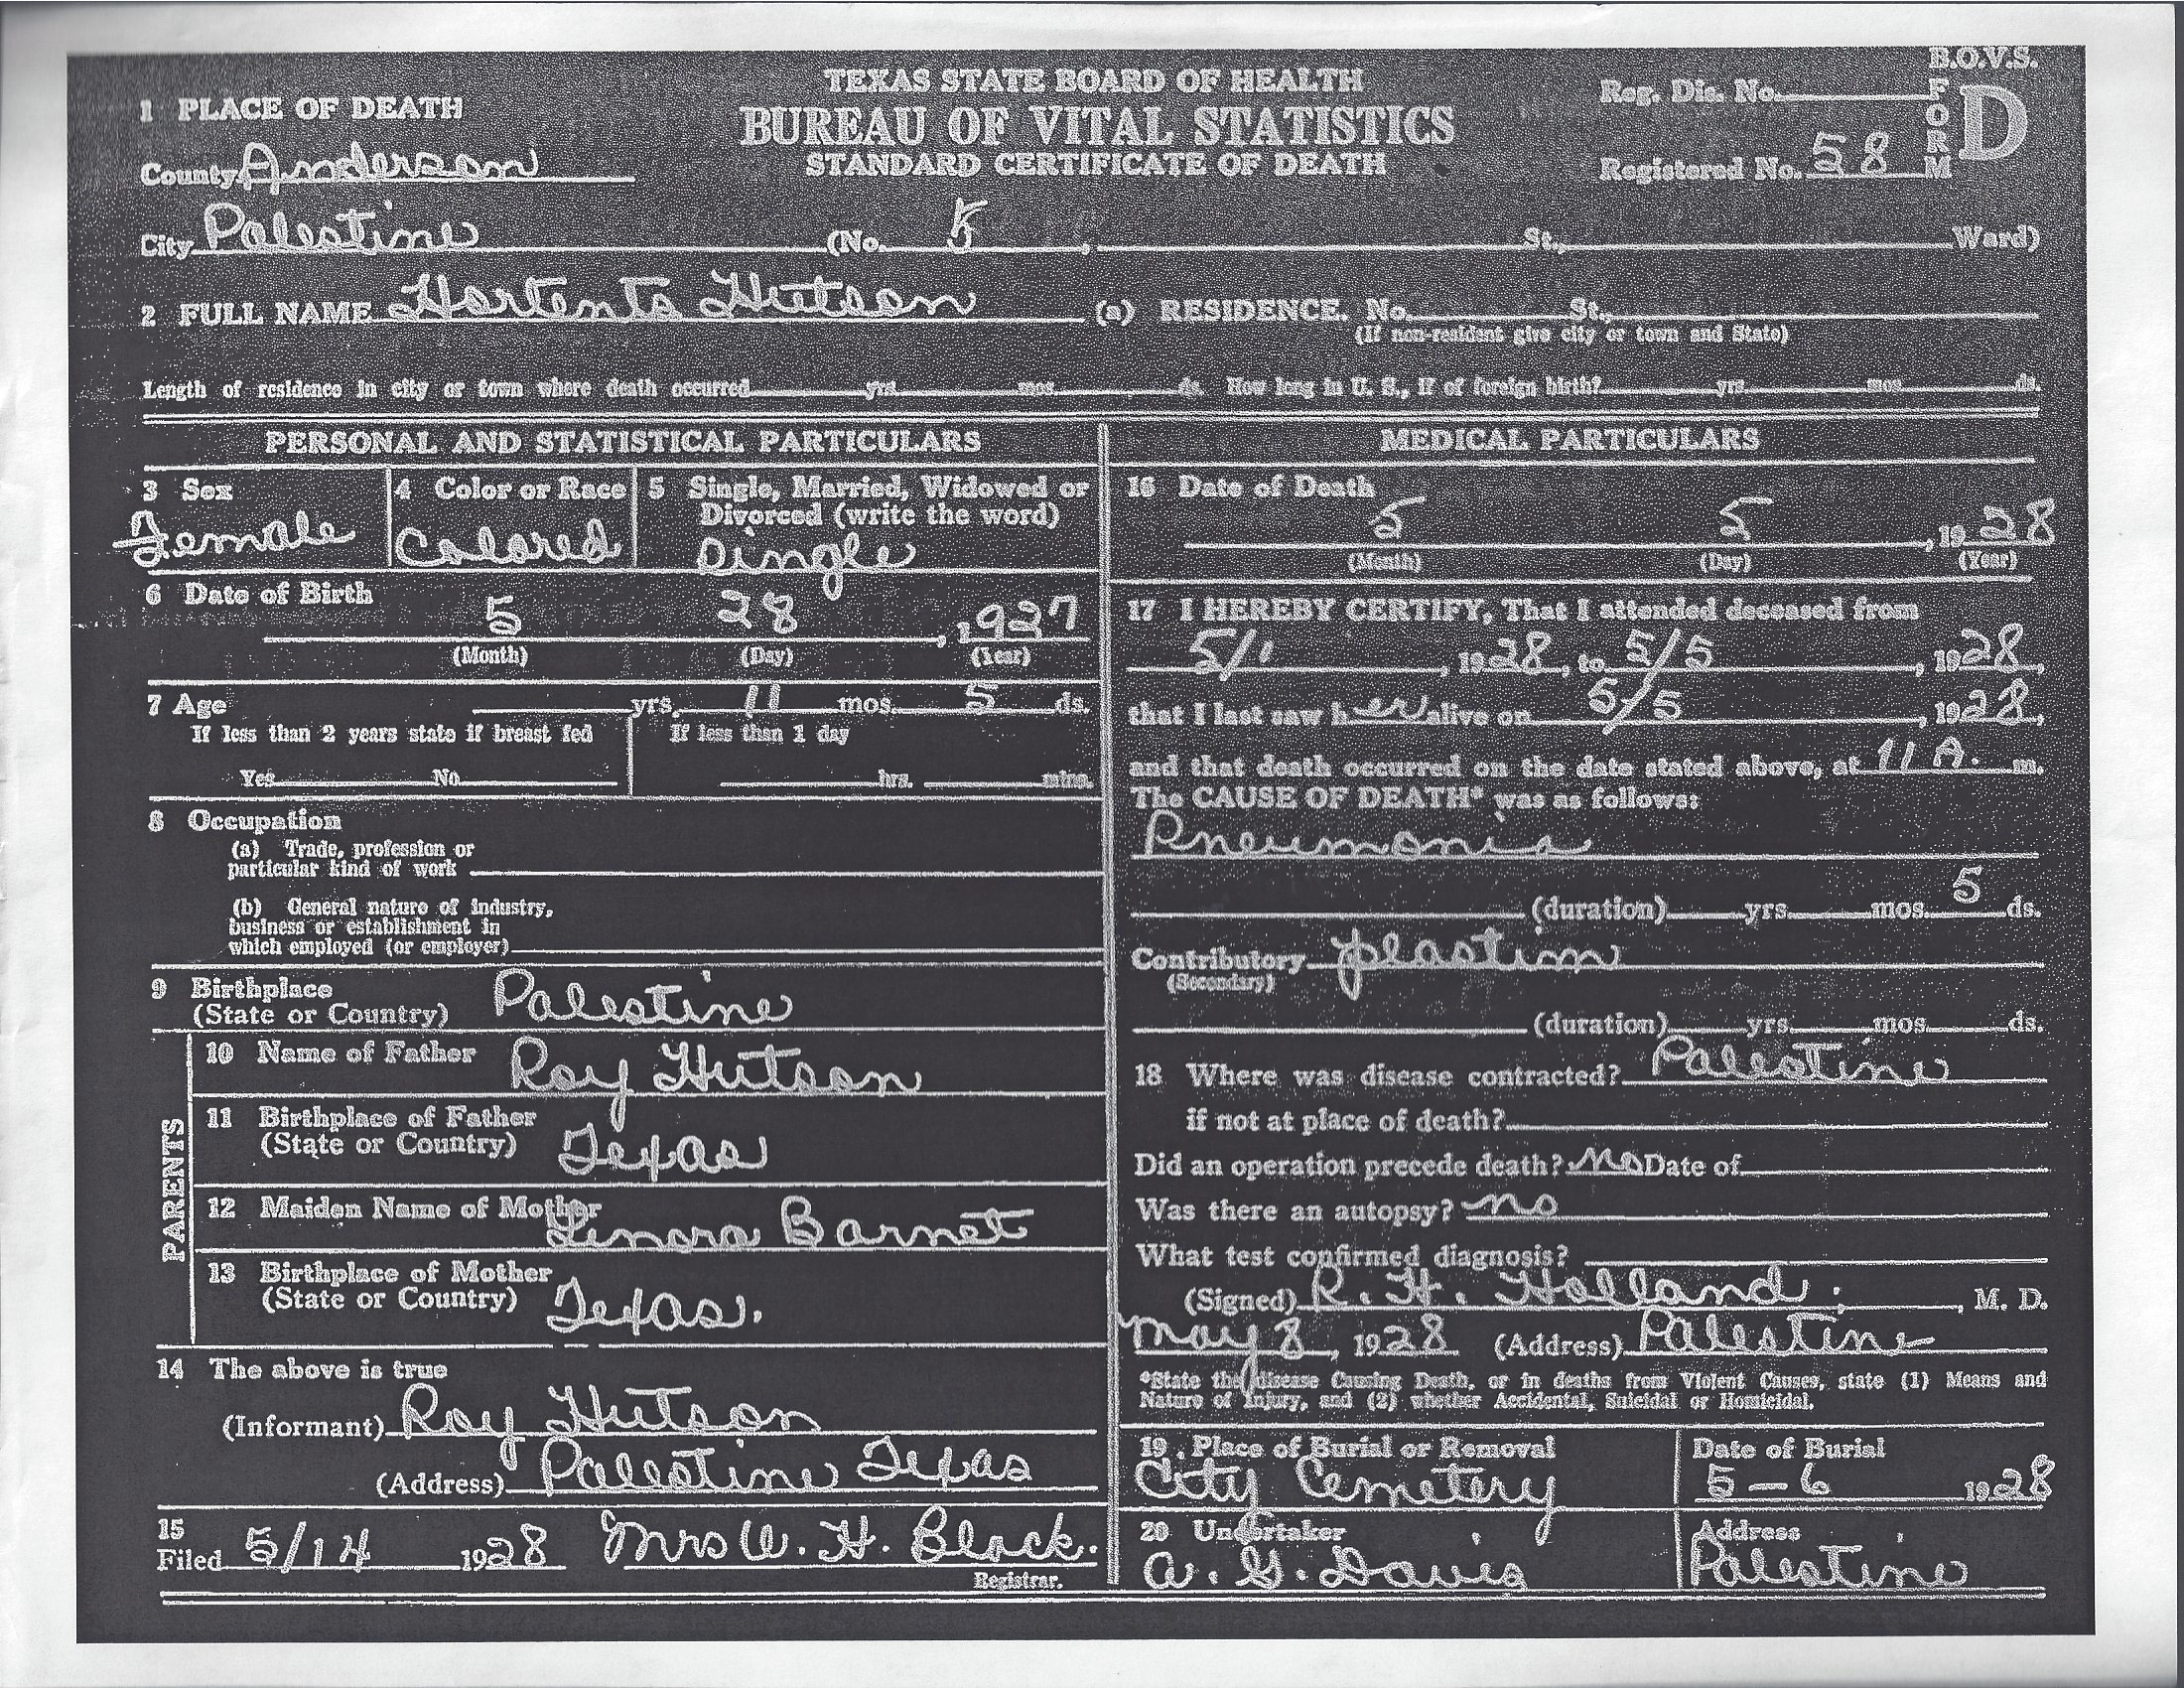 B.O.V.S.
FORM D
TEXAS STATE BOARD OF HEALTH
BUREAU OF VITAL STATISTICS
STANDARD CERTIFICATE OF DEATH
Reg. Dis. No.
Registered No. 58
1 PLACE OF DEATH
County Anderson
City Palestine (No. 5, St., Ward)
2 FULL NAME Hortenta Hutson (a) RESIDENCE. No. St.,
(If non-resident give city or town and State)
Length of residence in city or town where death occurred yrs. mos. ds. How long in U. S., if of foreign birth? yrs. mos. ds.
PERSONAL AND STATISTICAL PARTICULARS
3 Sex
Female
4 Color or Race
Colored
5 Single, Married, Widowed or
Divorced (write the word)
Single
6 Date of Birth
5 28, 1927
(Month) (Day) (Year)
7 Age yrs. 11 mos. 5 ds.
If less than 2 years state if breast fed
Yes No
If less than 1 day
hrs. mins.
8 Occupation
(a) Trade, profession or
particular kind of work
(b) General nature of industry,
business or establishment in
which employed (or employer)
9 Birthplace
(State or Country) Palestine
PARENTS
10 Name of Father Roy Hutson
11 Birthplace of Father
(State or Country) Texas
12 Maiden Name of Mother
Lenora Barnet
13 Birthplace of Mother
(State or Country) Texas.
14 The above is true
(Informant) Roy Hutson
(Address) Palestine Texas
15
Filed 5/14 1928 Mrs W. H. Black.
Registrar.
MEDICAL PARTICULARS
16 Date of Death
5 5, 1928
(Month) (Day) (Year)
17 I HEREBY CERTIFY, That I attended deceased from
5/1, 1928, to 5/5, 1928,
that I last saw her alive on 5/5, 1928,
and that death occurred on the date stated above, at 11 A. m.
The CAUSE OF DEATH* was as follows:
Pneumonia
(duration) yrs. mos. 5 ds.
Contributory
(Secondary)
(duration) yrs. mos. ds.
18 Where was disease contracted? Palestine
if not at place of death?
Did an operation precede death? no Date of
Was there an autopsy? no
What test confirmed diagnosis?
(Signed) R. H. Holland, M. D.
May 8, 1928 (Address) Palestine
*State the disease Causing Death, or in deaths from Violent Causes, state (1) Means and
Nature of Injury, and (2) whether Accidental, Suicidal or Homicidal.
19. Place of Burial or Removal
City Cemetery
Date of Burial
5-6 1928
20 Undertaker
A. G. Davis
Address
Palestine